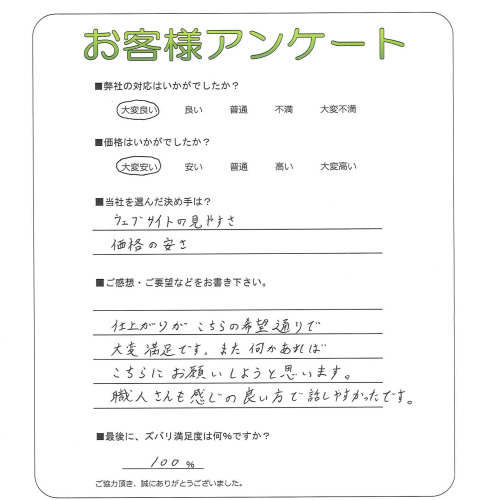 お客様アンケート
■弊社の対応はいかがでしたか?
大変良い 良い 普通 不満 大変不満
■価格はいかがでしたか?
大変安い 安い 普通 高い 大変高い
■当社を選んだ決め手は?
ウェブサイトの見やすさ
価格の安さ
■ご感想・ご要望などをお書き下さい。
仕上がりが こちらの希望通りで
大変満足です。また何かあれば
こちらにお願いしようと思います。
職人さんも感じの良い方で話しやすかったです。
■最後に、ズバリ満足度は何%ですか?
100 %
ご協力頂き、誠にありがとうございました。